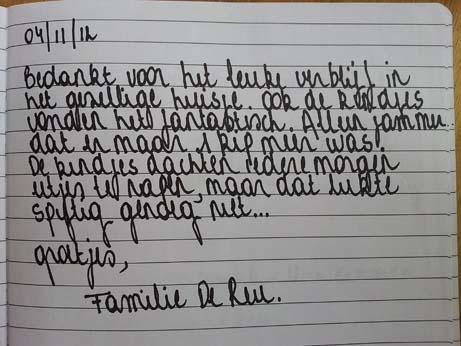 04/11/12
Bedankt voor het leuke verblijf in
het gezellige huisje. Ook de kindjes
vonden het fantastisch. Alleen jammer..
dat er maar 1 kip meer was.
De kindjes dachten iedere morgen
eitjes te rapen, maar dat lukte
spijtig genoeg niet...
groetjes,
Familie De